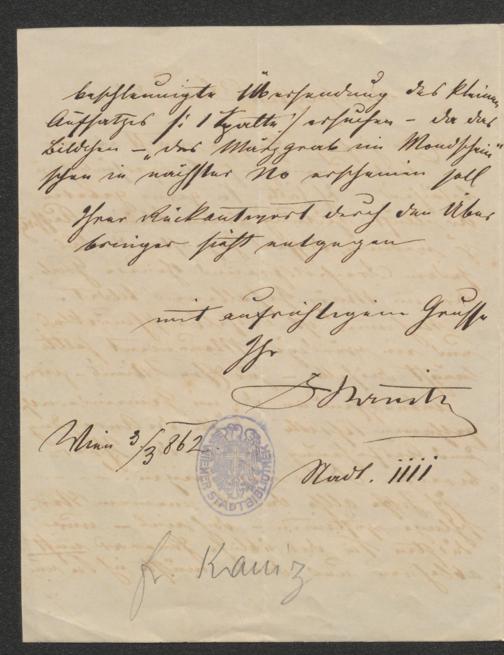 beschleunigte Übersendung des kleinen
Aufsatzes /: 1 Spalte :/ ersuchen – da das
Bildchen – „das Märzgrab im Mondschein“
schon in nächster No erscheinen soll
Ihrer Rückantwort durch den Über
bringer sieht entgegen
mit aufrichtigem Grusse
Ihr
F Kanitz
Wien 3/3 862
Stadt.
WIENER STADTBIBLIOTHEK
fr. Kanitz